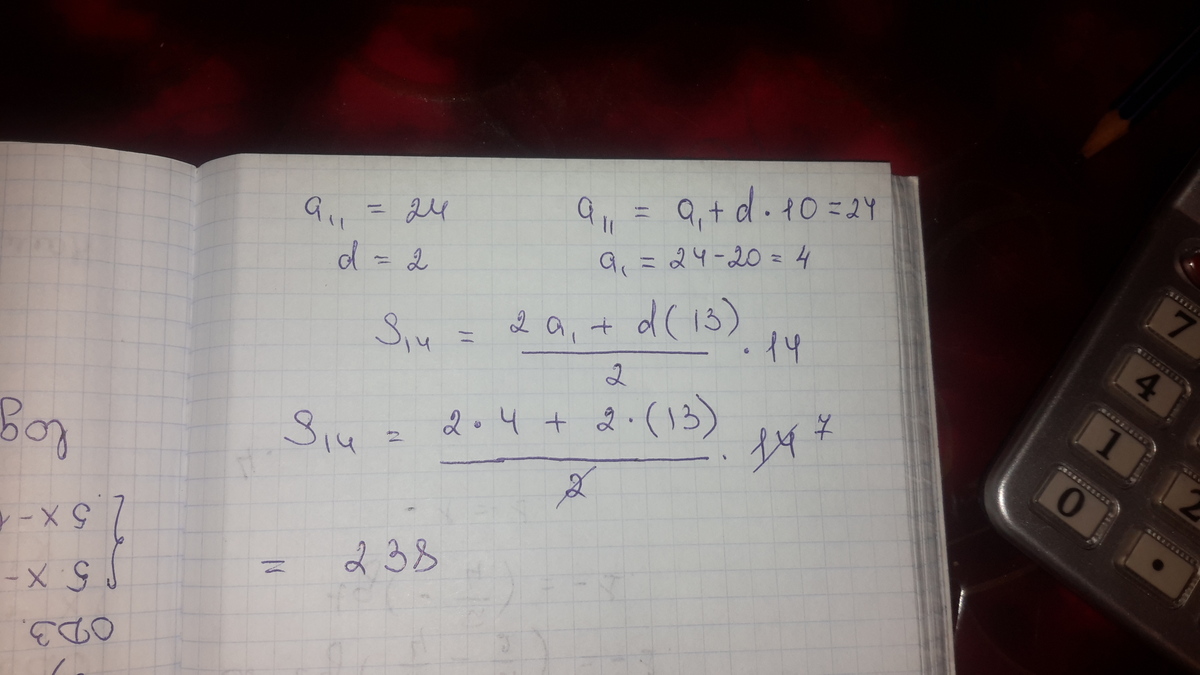 a₁₁ = 24
a₁₁ = a₁ + d · 10 = 24
d = 2
a₁ = 24 - 20 = 4
S₁₄ = (2a₁ + d(13)) / 2 · 14
S₁₄ = (2 · 4 + 2 · (13)) / 2 · 14 7
= 238
log
5x-
5x-
ОДЗ
7
4
1
0
2
.